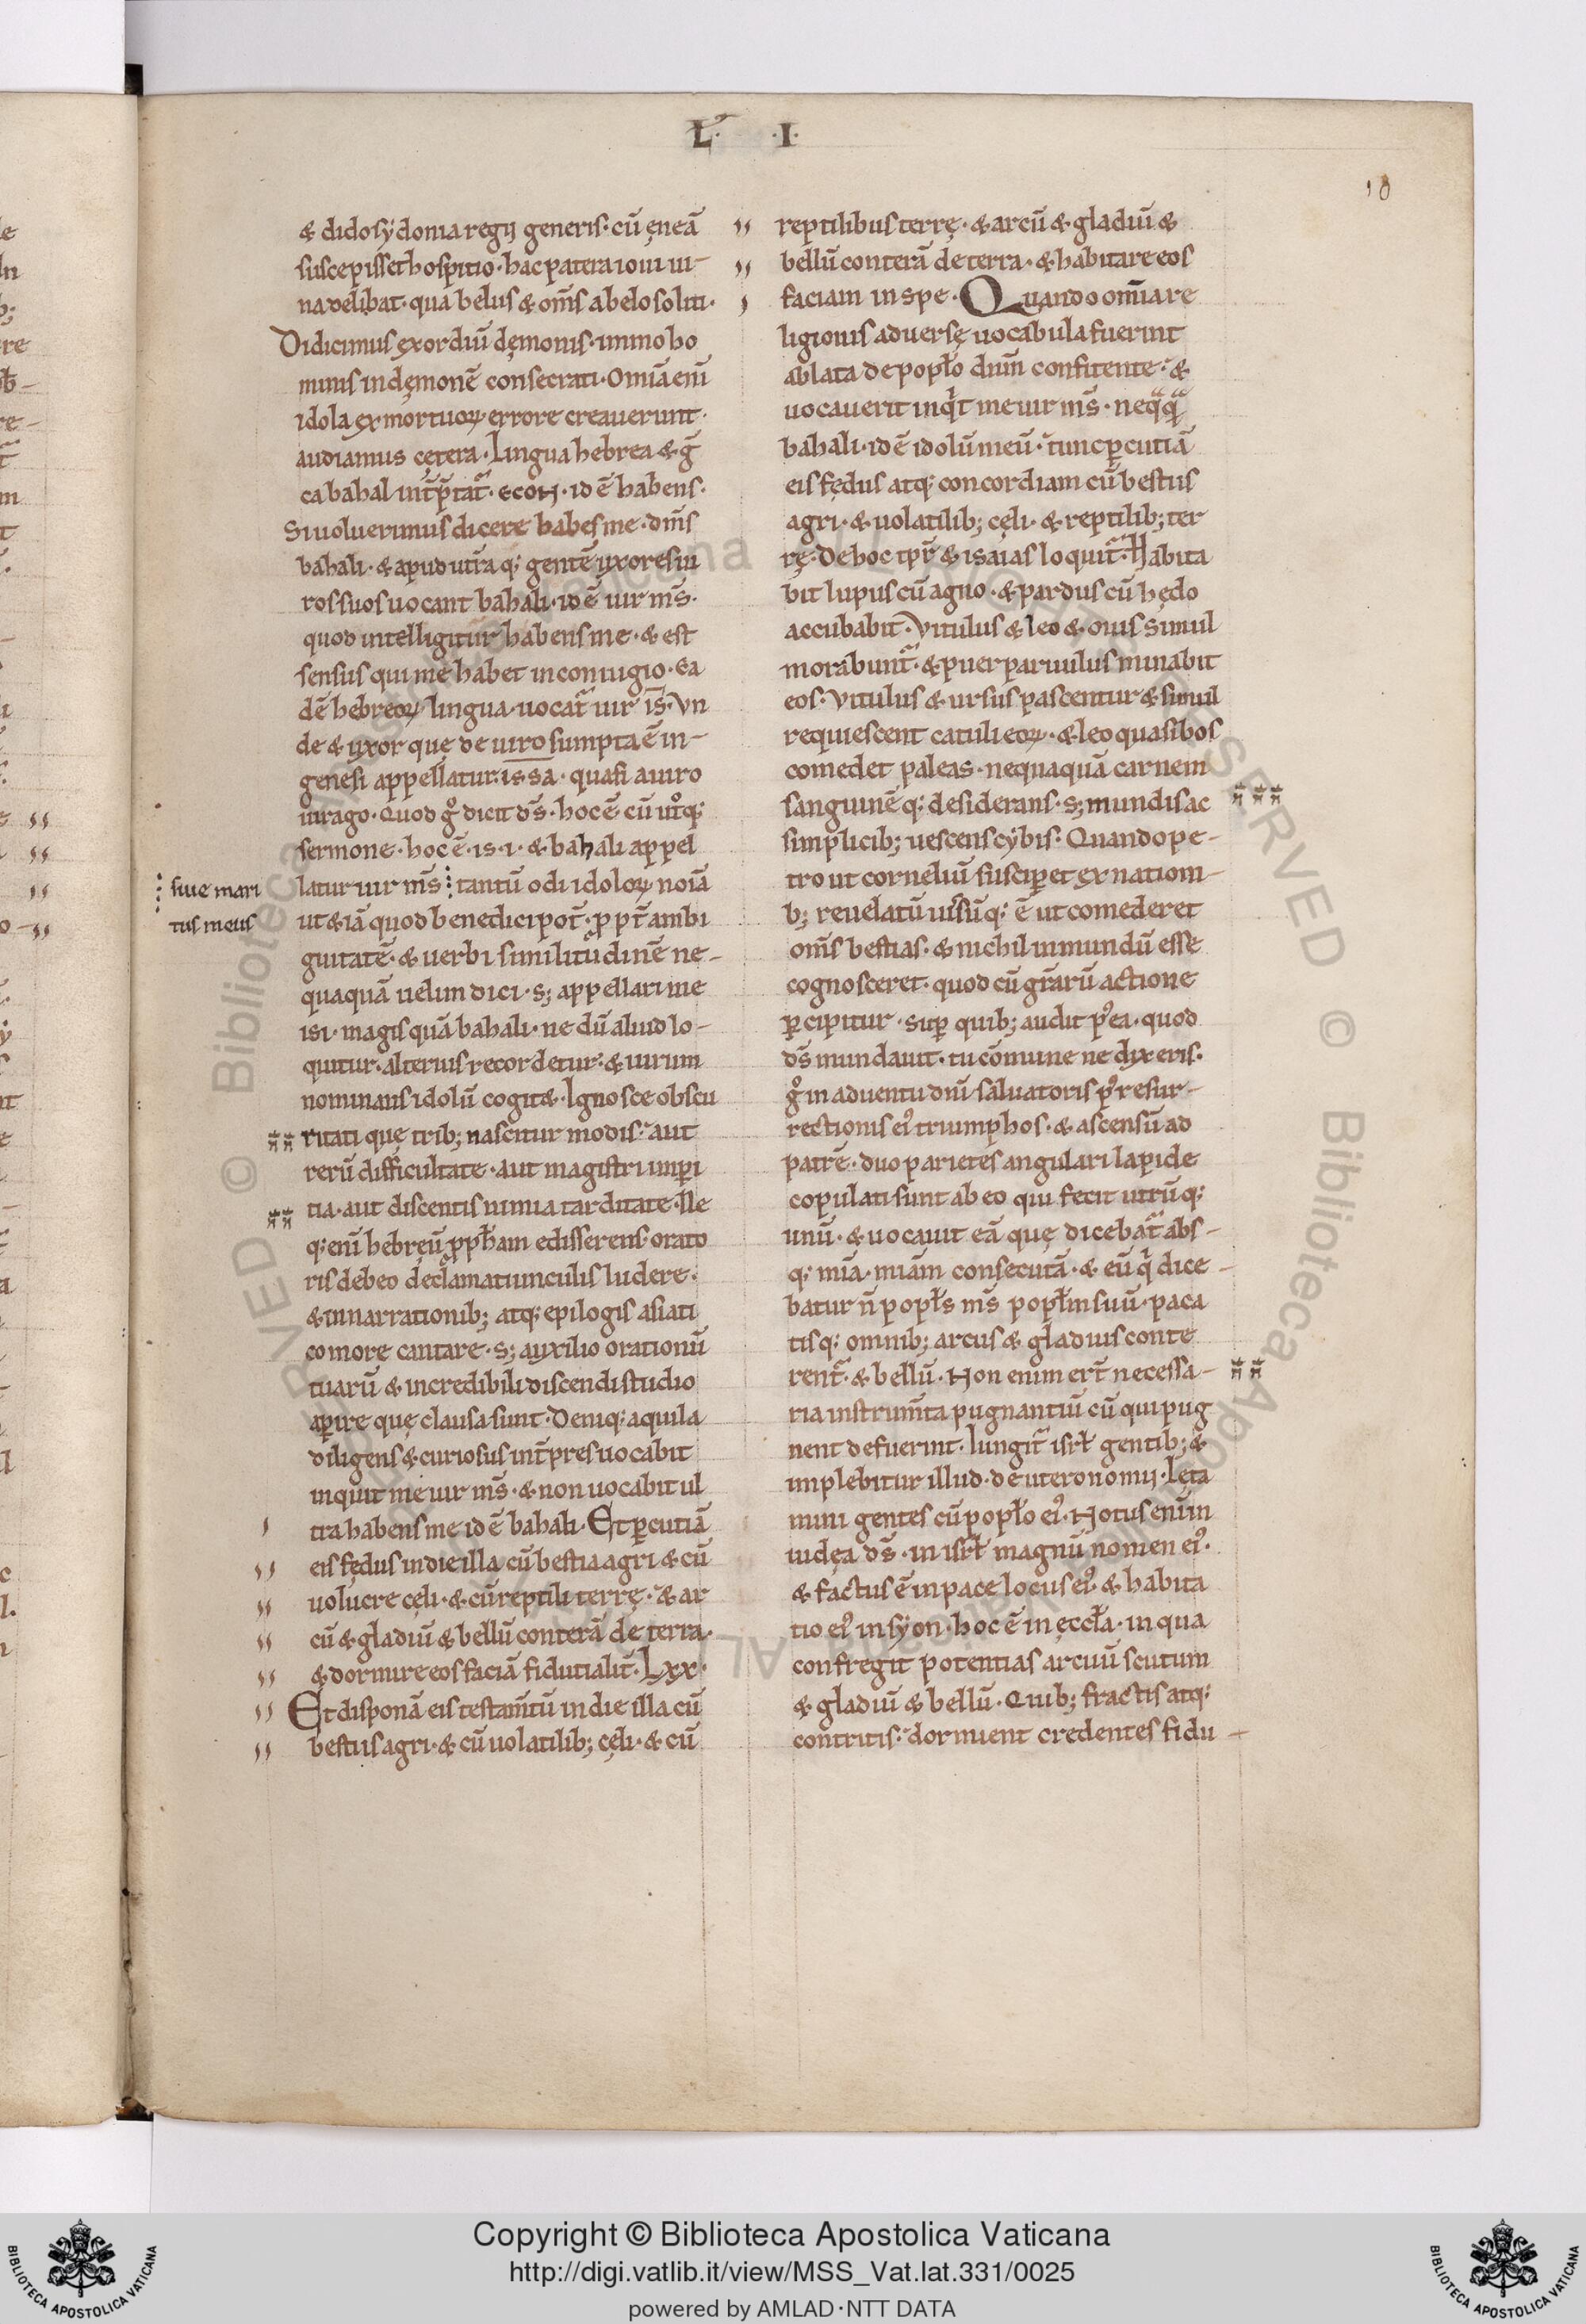 L. .I.
10
& dido sydonia regij generis. cū ęneā
suscepisset hospitio. hac patera ioui ui-
na delibat. qua belus & om̄s a belo soliti.
Didicimus exordiū dęmonis. immo ho
minis in dęmonē consecrati. Omīa enī
idola ex mortuoꝝ errore creauerunt.
audiamus cętera. Lingua hebrea & g̃
ca bahal int̄p̄tat᷑. ECΩN. id ē habens.
Si uoluerimus dicere habes me. dm̄s
bahali. & apud utrāq; gentē uxores ui
ros suos uocant bahali. id ē uir ms̄.
quod intelligitur habens me. & est
sensus qui me habet in coniugio. Ea
dē hebreoꝝ lingua uocat᷑ uir is̄. Vn
de & uxor que de uiro sumpta ē in-
genesi appellatur. issa. quasi a uiro
uirago. Quod g̊ dicit ds̄. hoc ē cū ut̊q;
sermone. hoc ē. is. i. & bahali appel
latur uir ms̄ ⁝ tantū odi idoloꝝ noīa
⁝ siue mari
tus meus
ut &iā quod bene dici pot̄. ꝓpt̄ ambi
guitatē. & uerbi similitudinē ne-
quaquā uelim dici. s; appellari me
isi. magis quā bahali. ne dū aliud lo-
quitur. alterius recordetur. & uirum
nominans idolū cogit&. Ignosce obscu
ritati quę trib; nascitur modis. aut
rerū difficultate. aut magistri imꝑi
tia. aut discentis nimia tarditate. Ne
q; enī hebreū ꝓph̄am edisserens. orato
ris debeo declamatiunculis ludere.
& in narrationib; atq; epilogis asiati
co more cantare. s; auxilio orationū
tuarū & incredibili discendi studio
aꝑire quę clausa sunt. Deniq; aquila
diligens & curiosus int̄pres uocabit
inquit me uir ms̄. & non uocabit ul
tra habens me id ē bahali. Et ꝑcutiā
eis fędus in die illa cū bestia agri & cū
uolucre cęli. & cū reptili terrę. & ar
cū & gladiū & bellū conterā de terra.
& dormire eos faciā fidutialit̄. Lxx.
Et disponā eis testam̄tū in die illa cū
bestiis agri. & cū uolatilib; cęli. & cū
reptilibus terrę. & arcū & gladiū &
bellū conterā de terra. & habitare eos
faciam in spe. Quando omīa re
ligionis aduersę uocabula fuerint
ablata de popło dnm̄ confitente. &
uocauerit inqͥt me uir ms̄. neqᷓqᷓ
bahali. id ē idolū meū. tunc ꝑcutiā
eis fędus atq; concordiam cū bestiis
agri. & uolatilib; cęli. & reptilib; ter
rę. De hoc tp̄r & isaias loquit᷑. Habita
bit lupus cū agno. & pardus cū hędo
accubabit. Vitulus & leo & ouis simul
morabunt᷑. & puer paruulus minabit
eos. Vitulus & ursus pascentur & simul
requiescent catuli eoꝝ. & leo quasi bos
comedet paleas. nequaquā carnem
sanguinēq; desiderans. s; mundis ac
simplicib; uescens cybis. Quando pe-
tro ut corneliū susciꝑet ex nation-
b; reuelatū uisūq; ē ut comederet
om̄s bestias. & nichil inmundū esse
cognosceret. quod cū gr̄arū actione
ꝑcipitur. Suꝑ quib; audit p᷒ea. quod
ds̄ mundauit. tu cōmune ne dixeris.
g̊ in aduentu dnī saluatoris p᷒ resur-
rectionis ei᷒ triumphos. & ascensū ad
patrē. duo parietes angulari lapide
copulati sunt ab eo qui fecit utrūq;
unū. & uocauit eā quę dicebat᷑ abs-
q; mīa. mīam consecutā. & eū qͥ dice-
batur n̄ popłs ms̄ popłm suū. paca
tisq; omnib; arcus & gladius conte
rent᷑. & bellū. Non enim er̄t necessa-
ria instrum̄ta pugnantiū cū qui pug
nent defuerint. Iungit᷑ isrł gentib; &
implebitur illud. deuteronomij. Lęta
mini gentes cū popło ei᷒. Notus enīm
iudęa ds̄. in isrł magnū nomen ei᷒.
& factus ē in pace locus ei᷒. & habita
tio ei᷒ in syon. hoc ē in ęccła. in qua
confregit potentias arcuū scutum
& gladiū & bellū. Quib; fractis atq;
contritis. dormient credentes fidu-
Copyright © Biblioteca Apostolica Vaticana
http://digi.vatlib.it/view/MSS_Vat.lat.331/0025
powered by AMLAD·NTT DATA
BIBLIOTECA APOSTOLICA VATICANA
BIBLIOTECA APOSTOLICA VATICANA